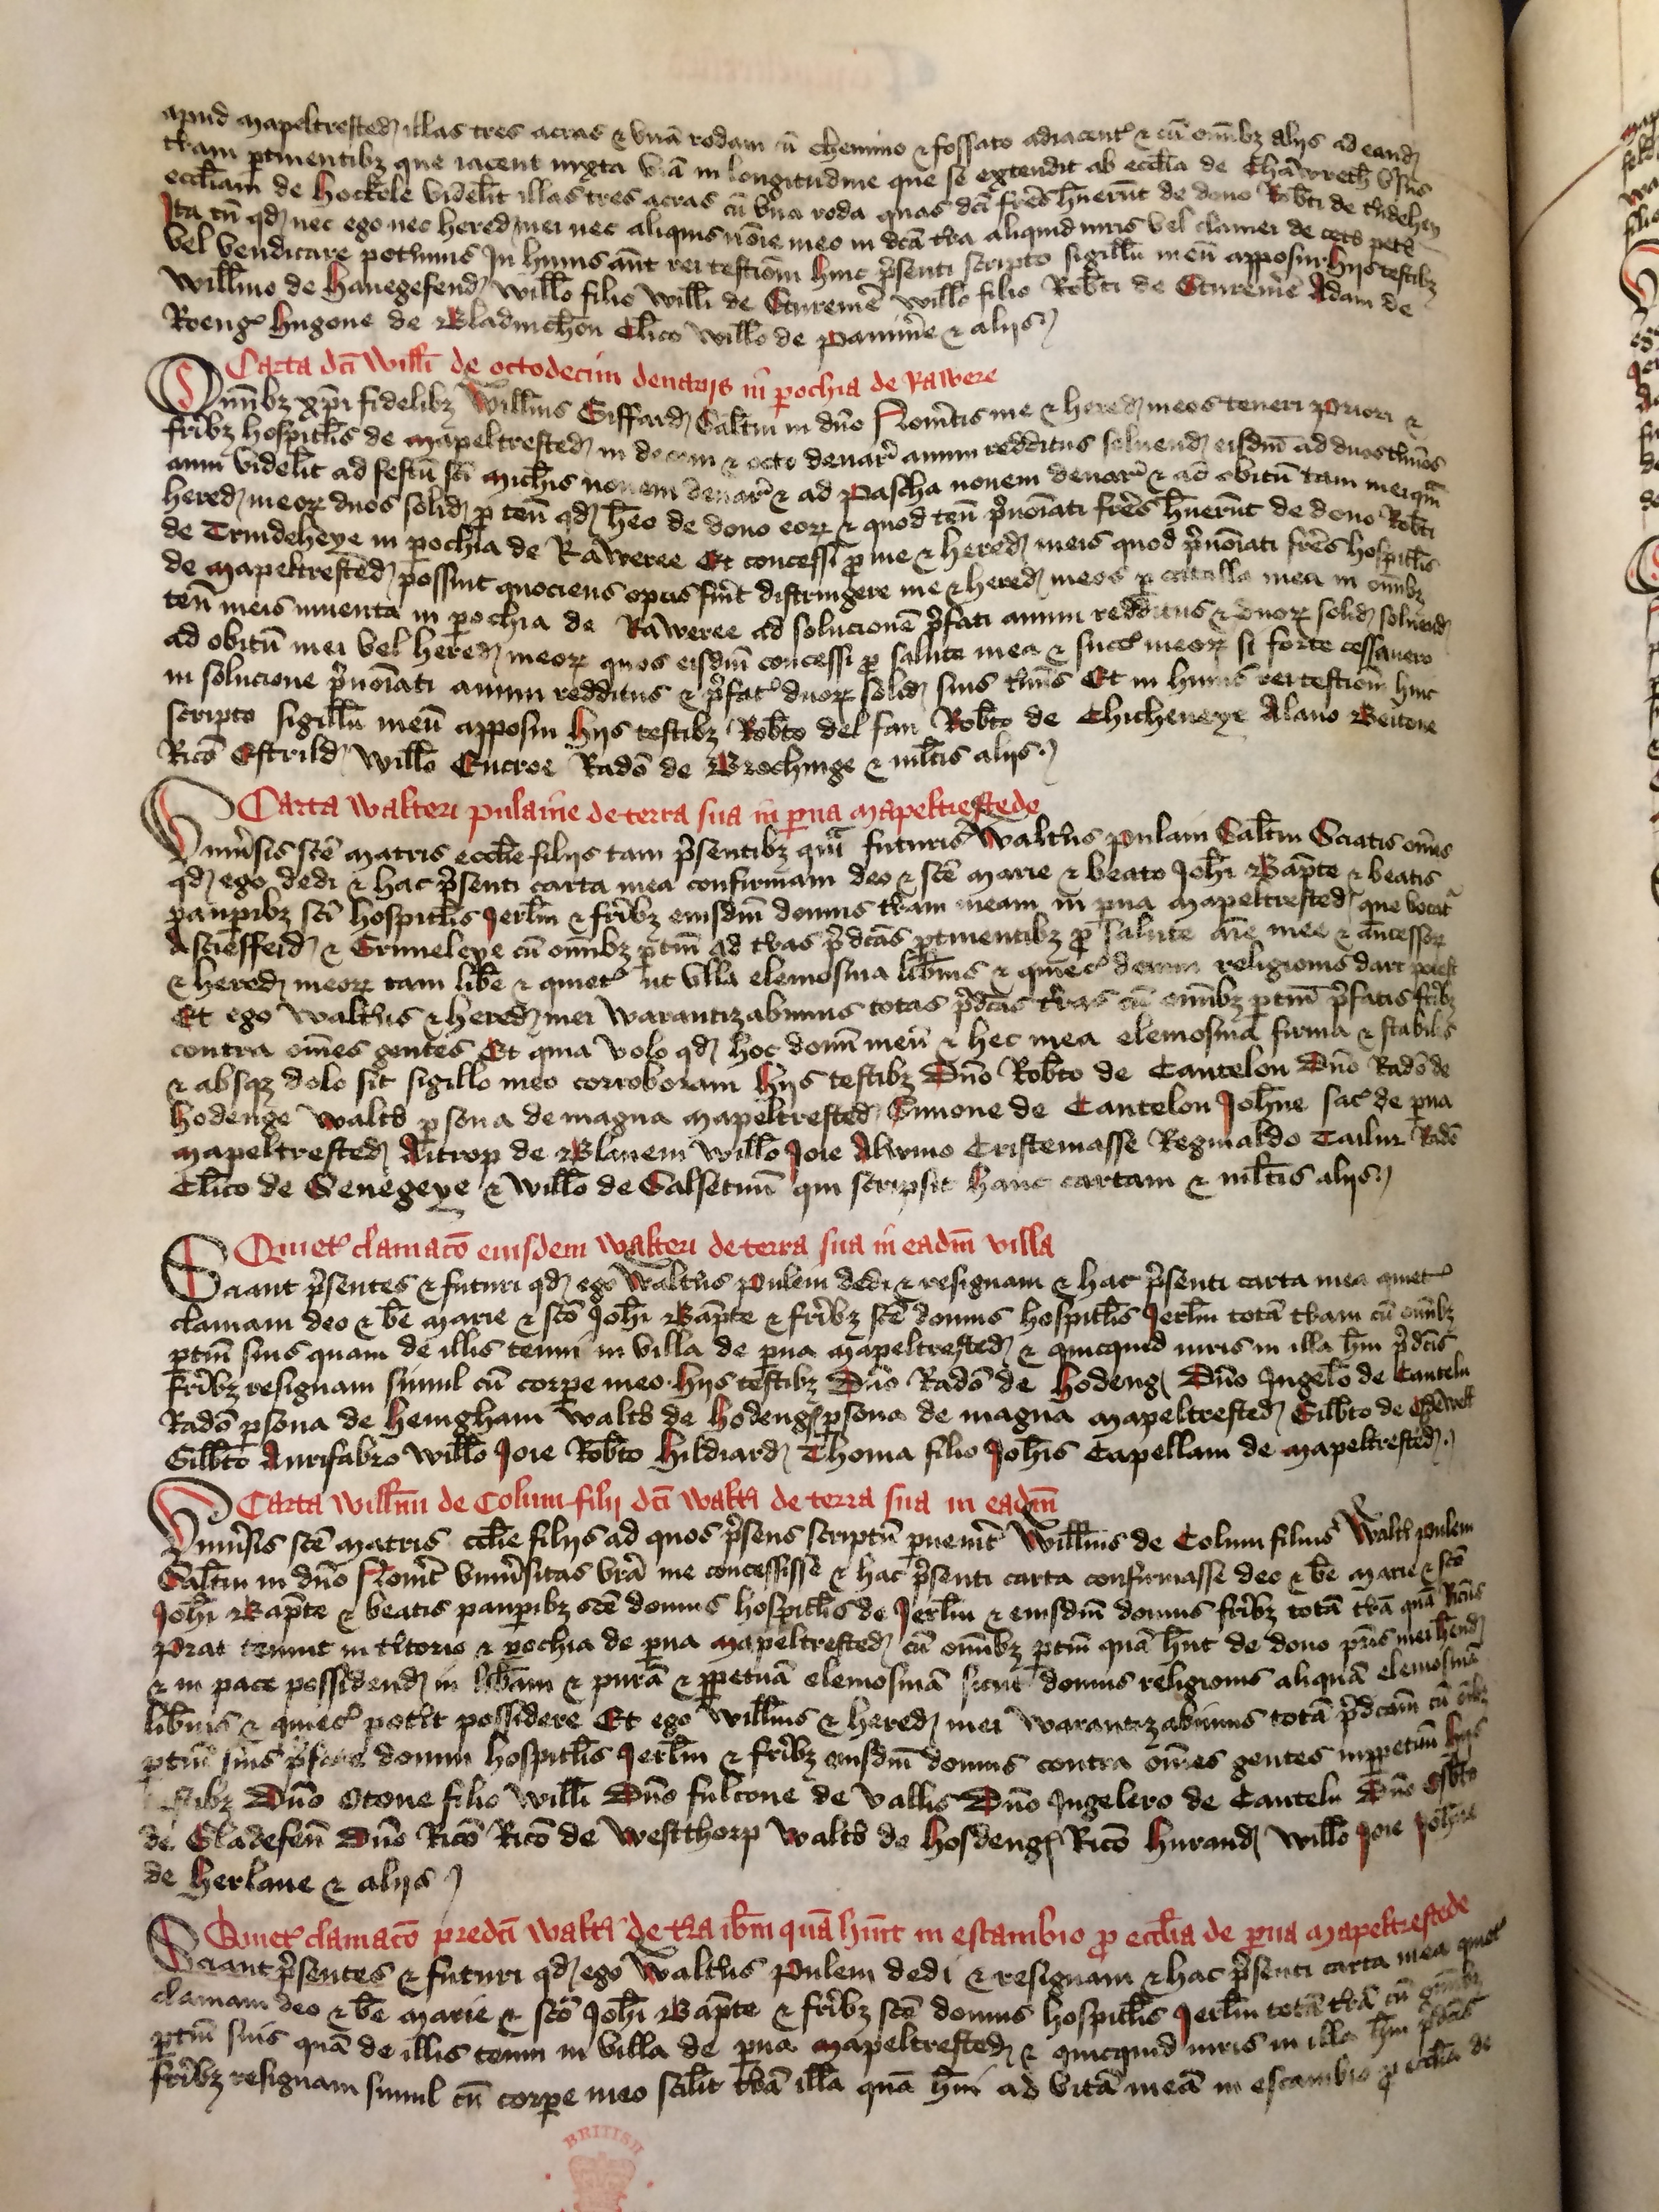 apud mapeltrested illas tres acras & unā rodam cū chemino & fossato adiacent' & cū omībz alijs ad eand
tram ptinentibz que iacent iuxta viā in longitudine que se extendit ab ecclia de Chāwreth vsus
eccliam de Hockele videlit illas tres acras cū vna roda quas dci frēs hūerūt de dono Robti de
Ita tn qd nec ego nec hered mei nec aliquis noīe meo in dcā tra aliquid iuris vel clamei de cetō petē
vel vendicare potimus In huius aūt rei testiom huic psenti scripto sigillū meū apposui hijs testibz
Willmo de Hanegefend Willo filio Willi de Sturemē Willo filio Robti de Stureme Adam de
Roeng' Hugone de Bladinchon Clico Willo de Panime & alijs
Carta dci Willi de octodecim denarijs in pochia de Rawere
Omībz xpi fidelibz Willms Giffard Saltm in dno Novitis me & hered meos teneri Priori &
fribz hospitlis de mapeltrested in decem & octo denar' annui redditus soluend eisdm ad duos tmīos
anni videlit ad festū sci Michis nonem denar' & ad Pascha nonem denar' & ad obitū tam mei qm
hered meor duos solid p ten qd heo de dono eor & quod ten pnoīati frēs hūerūt de dono Robti
de Trindeheye in pochia de Raweree Et concessi p me & hered meis quod pnoīati frēs hospitlis
de mapeltrested possint quociens opus fuit distringere me & hered meos p catalla mea in omībz
ten meis inuenta in pochia de Raweree ad solucionē pfati annui redditus & duor solid soluend
ad obitū mei vel hered meor quos eisdm concessi p salute mea & succ' meor si forte cessauero
in solucione pnoīati annui redditus & pfat' duor solid suis tmīs Et in huius rei testiom huic
scripto sigillū meū apposui hijs testibz Robto del fan Robto de Chicheneye Alano Beitone
Rico Estrild Willo Encroe Rado de Brechinge & mltis alijs
Carta Walteri pulaine de terra sua in pua mapeltrestede
Vniusis scē matris ecclie filijs tam psentibz qm futuris Waltus pulain Saltm Sciatis omēs
qd ego dedi & hac psenti carta mea confirmaui deo & scē marie & beato Johi Bapte & beatis
paupibz sci hospitlis Jerlm & fribz eiusdm domus tram meam in pua mapeltrested que vocat'
Ascieffeld & Grimeleye cū omībz ptin ad tras pdcas ptinentibz p salute aīe mee & ancessor
& hered meor tam libe & quiet' ut vlla elemosina libius & quiec' domui religionis dari potest
Et ego Waltus & hered mei warantizabimus totas pdcas tras cū omībz ptin pfatis fribz
contra omēs gentes Et quia volo qd hoc donū meū & hec mea elemosina firma & stabilis
& absqz dolo sit sigillo meo corroboraui hijs testibz Dno Robto de Cantelou Dno Rado de
Hodenge Walto psona de magna mapeltrested Simone de Cantelou Johne sac' de pua
mapeltrested Aitrop de Blauem Willo Joie Alwino Cristemasse Reginaldo Tailur Rado
Clico de Senegeye & Willo de Salsetun qui scripsit hanc cartam & mltis alijs
Quiet' clamaco eiusdem Walteri de terra sua in eadm villa
Sciant psentes & futuri qd ego Waltus Pulein dedi & resignaui & hac psenti carta mea quiet'
clamaui deo & bē marie & sco Johi Bapte & fribz scē domus hospitlis Jerlm totā tram cū omībz
ptin suis quam de illis tenui in villa de pua mapeltrested & quicquid iuris in illa hui pdcis
fribz resignaui simul cū corpe meo hijs testibz Dno Rado de Hodeng Dno Ingelo de Cantelu
Rado psona de Heingham Walto de Hodeng psona de magna mapeltrested Gilbto de
Gilbto Aurifabro Willo Joie Robto Hildiard Thoma filio Johis Capellani de mapeltrested
Carta Willmi de Colum filij dci Walti de terra sua in eadm
Vniusis scē matris ecclie filijs ad quos psens scriptū puenit Willms de Colum filius Walti pulein
Saltm in dno Nouit vniusitas vra me concessisse & hac psenti carta confirmasse deo & bē marie & sco
Johi Bapte & beatis paupibz scē domus hospitlis de Jerlm & eiusdm domus fribz totā trā quā Ricus
Prat tenuit in titorio & pochia de pua mapeltrested cū omībz ptin quā hnt de dono pris mei hend
& in pace possidend in libam & purā & ppetuā elemosinā sicut domus religionis aliquā elemosinā
libius & quiec' potit possidere Et ego Willms & hered mei warantizabimus totā pdcam cū oībz
ptin suis pfate domui hospitlis Jerlm & fribz eiusdm domus contra omēs gentes inppetuū hijs
testibz Dno Otone filio Willi Dno fulcone de vallis Dno Ingelero de Cantelu Dno Osbto
de Gladefen Dno Rico Rico de Westthorp Walto de Hosdeng Rico Hurand Willo Joie Johne
de Herlaue & alijs
Quiet' clamaco predci Walti de tra ibm quā hūit in escambio p ecclia de pua mapeltrestede
Sciant psentes & futuri qd ego Waltus Pulein dedi & resignaui & hac psenti carta mea quiet'
clamaui deo & bē marie & sco Johi Bapte & fribz scē domus hospitlis Jerlm totā trā cū omībz
ptin suis quā de illis tenui in villa de pua mapeltrested & quicquid iuris in illa hui pdcis
fribz resignaui simul cū corpe meo scilit trā illā quā hui ad vitā meā in escambio p ecclia de
BRITISH